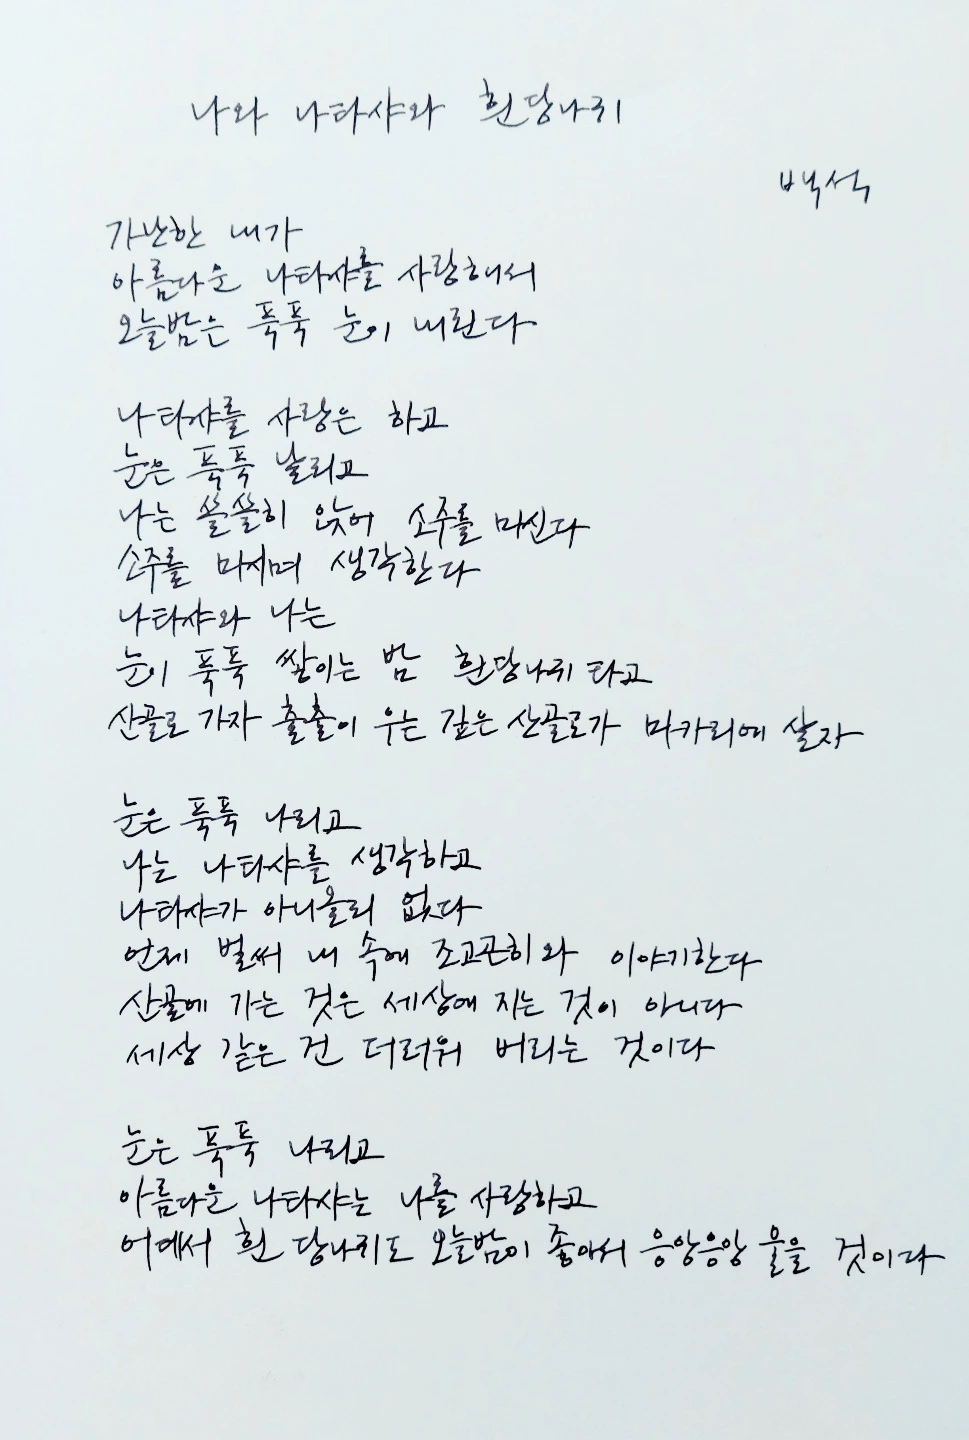 나와 나타샤와 흰당나귀
백석
가난한 내가
아름다운 나타샤를 사랑해서
오늘밤은 푹푹 눈이 내린다
나타샤를 사랑은 하고
눈은 푹푹 날리고
나는 쓸쓸히 앉어 소주를 마신다
소주를 마시며 생각한다
나타샤와 나는
눈이 푹푹 쌓이는 밤 흰당나귀 타고
산골로 가자 출출이 우는 깊은 산골로가 마카리에 살자
눈은 푹푹 나리고
나는 나타샤를 생각하고
나타샤가 아니올리 없다
언제 벌써 내 속에 조고곤히 와 이야기한다
산골에 가는 것은 세상에 지는 것이 아니다
세상 같은 건 더러워 버리는 것이다
눈은 푹푹 나리고
아름다운 나타샤는 나를 사랑하고
어데서 흰 당나귀도 오늘밤이 좋아서 응앙응앙 울을 것이다